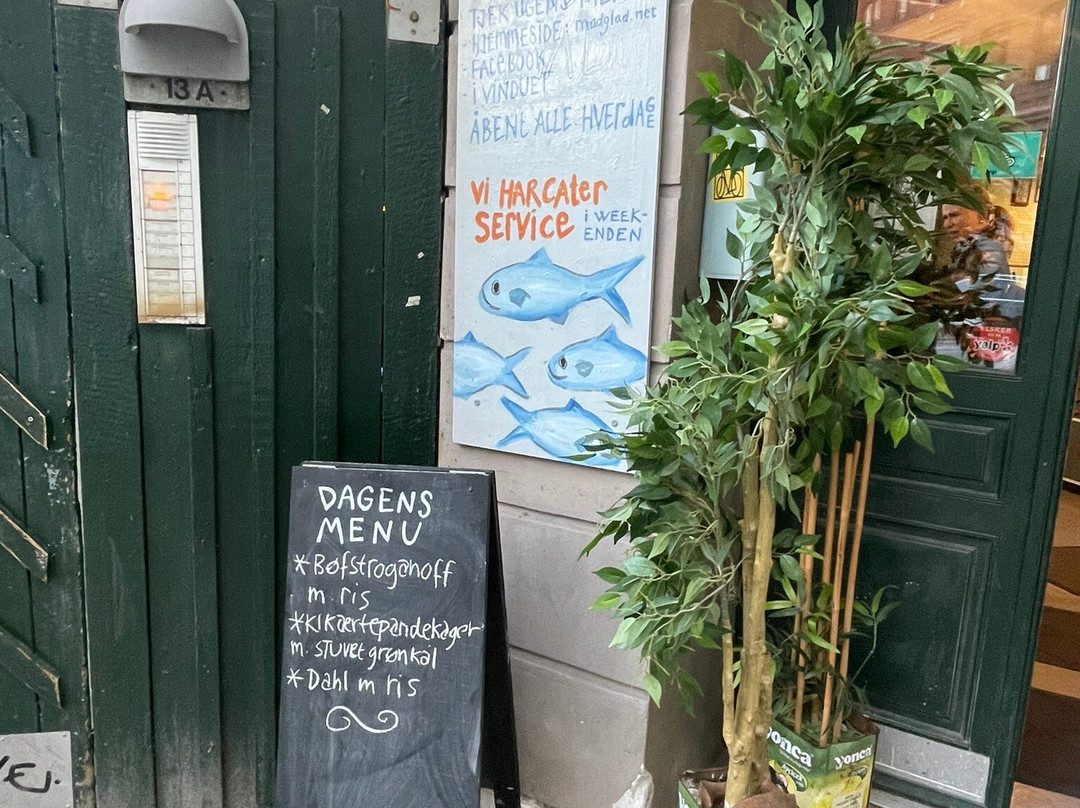 13 A
TJEK UGENS MENU
HJEMMESIDE: madglad.net
FACEBOOK
I VINDUET
ÅBENT ALLE HVERDAGE
VI HAR CATER
SERVICE
I WEEK-
ENDEN
DAGENS
MENU
*Bøfstroganoff
m. ris
*Kl Kærtepandekager
m. STUVET grønkål
*Dahl m ris
ELSKER
yelp
yonca
yonca